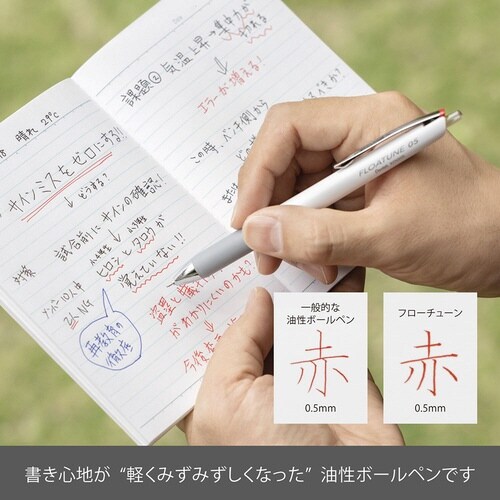 晴れ 29℃
サインミスをゼロにする!!
↓どうする?
対策
試合前にサインの確認!
↓
ヒロシとタロウが
覚えていない!!
メンバー10人中
2人NG
再教育の
徹底
課題② 気温上昇→集中力が
エラーが増える!
この時、ベンチ側から
盗塁と
がわかりにくいのかも?
↓
FLOATUNE 05
一般的な
油性ボールペン
赤
0.5mm
フローチューン
赤
0.5mm
書き心地が“軽くみずみずしくなった”油性ボールペンです